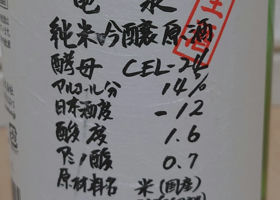 亀泉
純米吟醸原酒
生酒
酵母 CEL-24
アルコール分 14%
日本酒度 -12
酸度 1.6
アミノ酸 0.7
原材料名 米(国産)